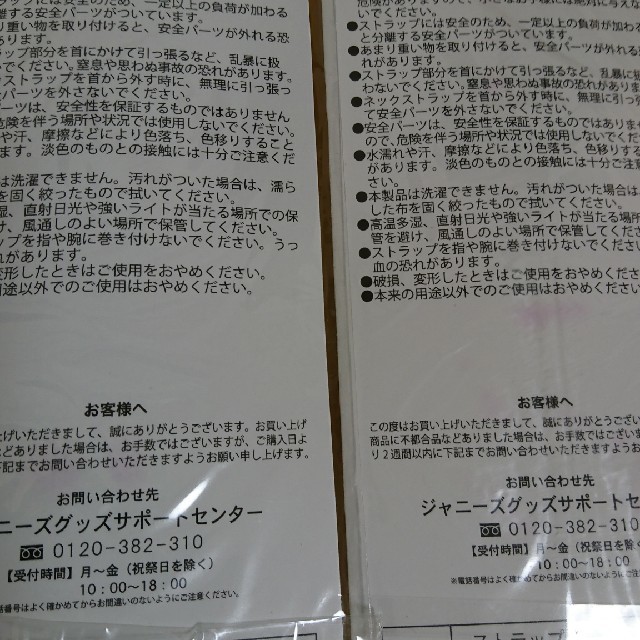 ストラップには安全のため、一定以上の負荷が加わる
する安全パーツがついています。
り重い物を取り付けると、安全パーツが外れる恐
あります。
ラップ部分を首にかけて引っ張るなど、乱暴に扱
いでください。窒息や思わぬ事故の恐れがあります。
クストラップを首から外す時に、無理に引っ張っ
全パーツを外さないでください。
パーツは、安全性を保証するものではありません
危険を伴う場所や状況では使用しないでください。
や汗、摩擦などにより色落ち、色移りすること
ます。淡色のものとの接触には十分ご注意くだ
は洗濯できません。汚れがついた場合は、濡ら
を固く絞ったもので拭いてください。
湿、直射日光や強いライトが当たる場所での保
け、風通しのよい場所で保管してください。
ップを指や腕に巻き付けないでください。うっ
れがあります。
変形したときはご使用をおやめください。
用途以外でのご使用はおやめください。
お客様へ
上げいただきまして、誠にありがとうございます。お買い上げ
などありました場合は、お手数ではございますが、ご購入日よ
下記までお問い合わせいただきますようお願い申し上げます。
お問い合わせ先
ニーズグッズサポートセンター
0120-382-310
【受付時間】月~金(祝祭日を除く)
10:00~18:00
話番号はよく確かめてからお間違いのないようにご注意ください。
いでください。
●ストラップには安全のため、一定以上の負荷が加
と分離する安全パーツがついています。
●あまり重い物を取り付けると、安全パーツが外れ
れがあります。
●ストラップ部分を首にかけて引っ張るなど、乱暴に
わないでください。窒息や思わぬ事故の恐れがありま
●ネックストラップを首から外す時に、無理に引っ
て安全パーツを外さないでください。
●安全パーツは、安全性を保証するものではありませ
ので、危険を伴う場所や状況では使用しないでくだ
●水濡れや汗、摩擦などにより色落ち、色移りする
があります。淡色のものとの接触には十分ご注意
●本製品は洗濯できません。汚れがついた場合は
した布を固く絞ったもので拭いてください。
●高温多湿、直射日光や強いライトが当たる場所
管を避け、風通しのよい場所で保管してくださ
●ストラップを指や腕に巻き付けないでください
血の恐れがあります。
●破損、変形したときはご使用をおやめくださ
●本来の用途以外でのご使用はおやめください
お客様へ
この度はお買い上げいただきまして、誠にありがとうござい
商品に不都合品などありました場合は、お手数ではございま
り2週間以内に下記までお問い合わせいただきますようお
お問い合わせ先
ジャニーズグッズサポートセ
0120-382-310
【受付時間】月~金(祝祭日を除く
10:00~18:00
※電話番号はよく確かめてからお間違いのないようにご注
ストラップ